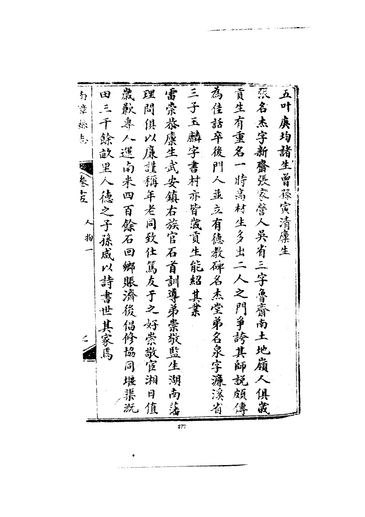 五叶庚均諸生曾孫寅清廩生
張名杰字新齋張家營人吳省三字魯齋南土地嶺人俱歲
貢生有重名一時高材生多出二人之門爭誇其師説頗傳
為佳話卒後門人並立有德教碑名杰堂弟名泉字濂溪省
三子玉麟字書村亦皆歲貢生能紹其業
雷崇恭廩生武安鎮右族官石首訓導弟崇敬監生湖南藩
理問俱以廉謹稱年老同致仕篤友于之好崇敬宦湘日值
歲歉專人運南米四百餘石回鄉賑濟後倡修協同堰渠溉
田三千餘畝里人德之子孫咸以詩書世其家焉
南漳縣志
卷十五
人物一
177